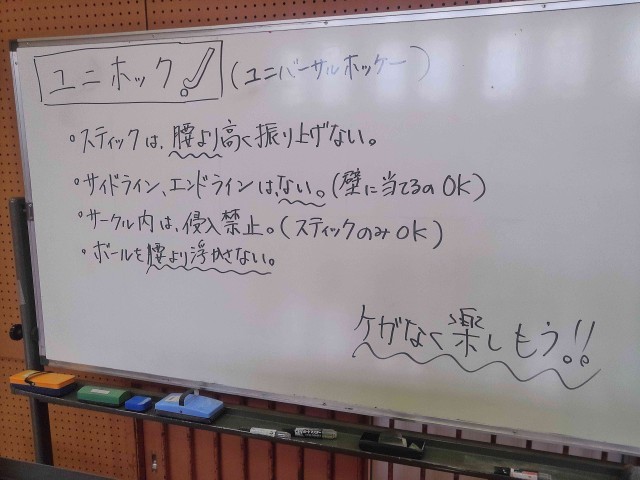 ユニホック! (ユニバーサルホッケー)
・スティックは、腰より高く振り上げない。
・サイドライン、エンドラインは、ない。(壁に当てるのOK)
・サークル内は、侵入禁止。(スティックのみOK)
・ボールを腰より浮かさない。
ケガなく楽しもう!!